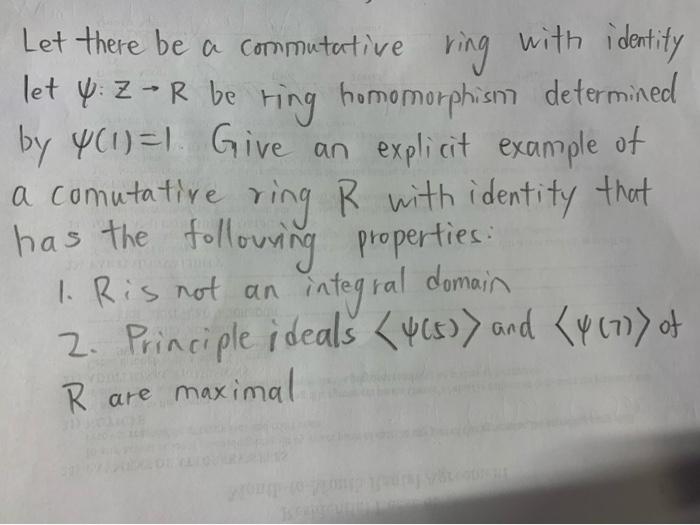 Let there be a commutative ring with identity
let ψ: Z → R be ring homomorphism determined
by ψ(1)=1. Give an explicit example of
a comutative ring R with identity that
has the following properties:
1. R is not an integral domain
2. Principle ideals <ψ(5)> and <ψ(7)> of
R are maximal